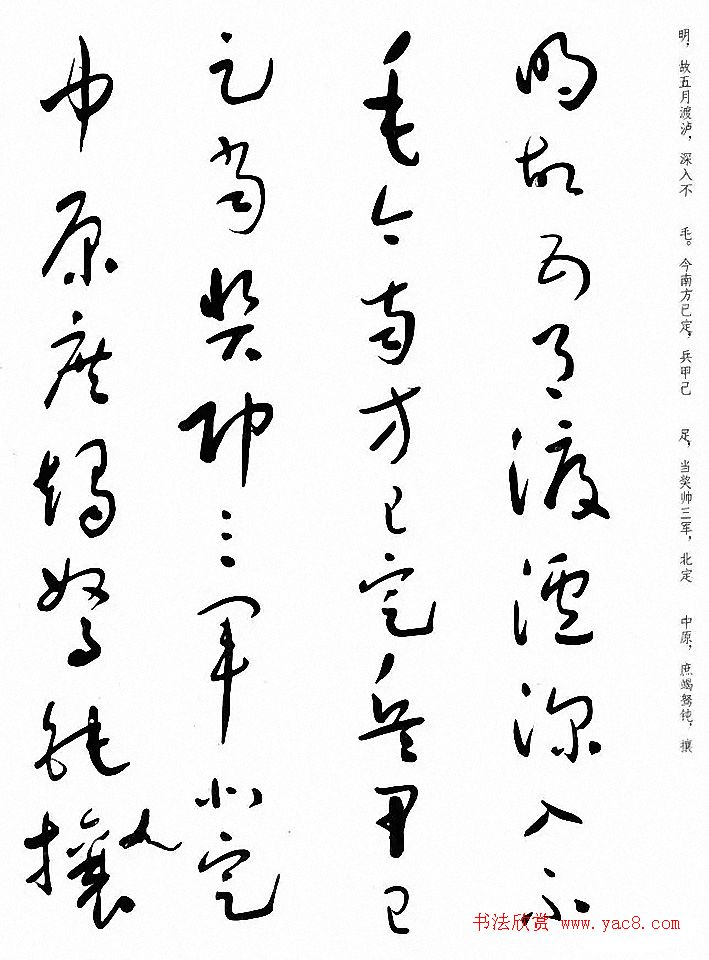 明，故五月渡泸，深入不　毛。今南方已定，兵甲已　足，当奖帅三军，北定　中原，庶竭驽钝，攘
明故五月渡瀘深入不
毛今南方已定兵甲已
足當獎帥三軍北定
中原庶竭駑鈍攘
书法欣赏 www.yac8.com